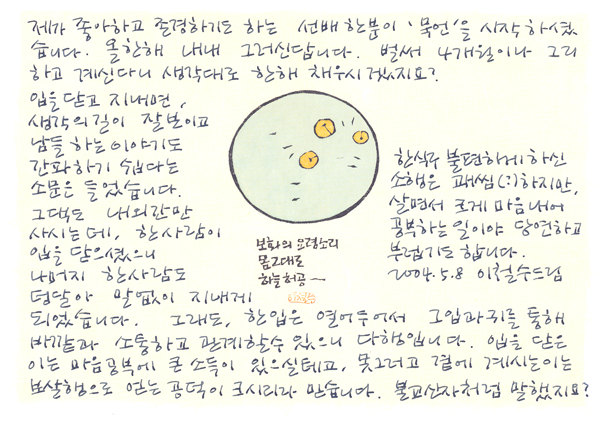 제가 좋아하고 존경하기도 하는 선배 한분이 '묵언'을 시작하셨
습니다. 올 한해 내내 그러신답니다. 벌써 4개월이나 그리
하고 계신다니 생각대로 한해 채우시겠지요?
입을 닫고 지내면,
생각의 길이 잘 보이고
남들 하는 이야기도
간파하기 쉽다는
소문은 들었습니다.
그댁도 내외간만
사시는데, 한사람이
입을 닫으셨으니
나머지 한사람도
덩달아 말없이 지내게
되었습니다. 그래도, 한입은 열어두어서 그 입과 귀를 통해
바깥과 소통하고 관계할 수 있으니 다행입니다. 입을 닫은
이는 마음공부에 큰 소득이 있으실테고, 못그러고 곁에 계시는 이는
보살행으로 얻는 공덕이 크시리라 믿습니다. 불교신자처럼 말했지요?
한식구 불편하게 하신
소행은 괘씸(?)하지만,
살면서 크게 마음내어
공부하는 일이야 당연하고
부럽기도 합니다.
2004.5.8 이철수드림
보화의 요령소리
몸 그대로
하늘 허공~